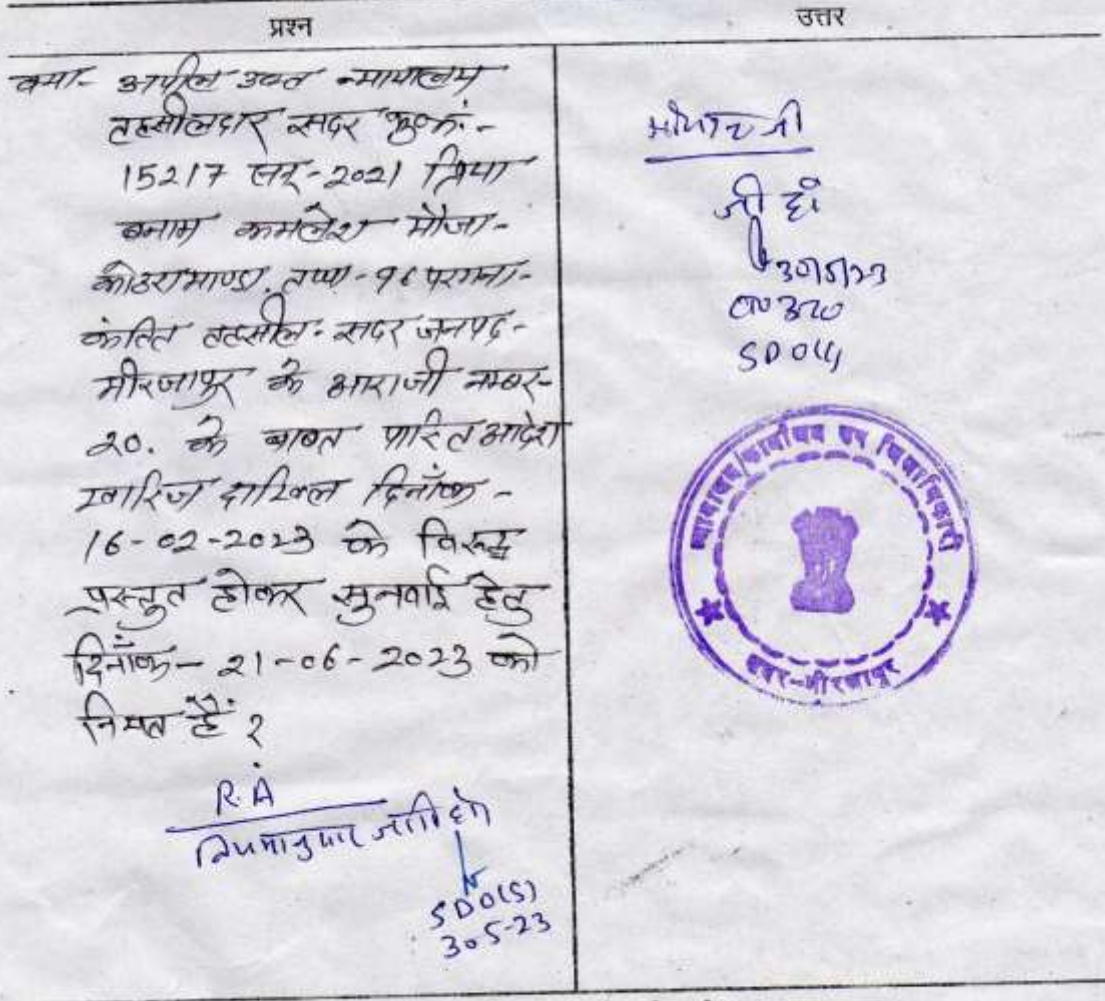 प्रश्न
उत्तर
क्या- अपील उक्त न्यायालय
तहसीलदार सदर मु०नं:-
15217 सन्-2021 प्रिया
बनाम कमलेश मौजा-
तप्पा-96 परगना-
कंतित तहसील- सदर जनपद-
मीरजापुर के आराजी नम्बर-
20. के बाबत पारित आदेश
खारिज दाखिल दिनाँक -
16-02-2023 के विरुद्ध
प्रस्तुत होकर सुनवाई हेतु
दिनाँक- 21-06-2023 को
नियत हैं ?
R.A
नियमानुसार जारी हो
SDO(S)
30-5-23
जी हाँ
30/5/23
SDO(S)
न्यायालय/कार्यालय उप जिलाधिकारी
सदर-मीरजापुर